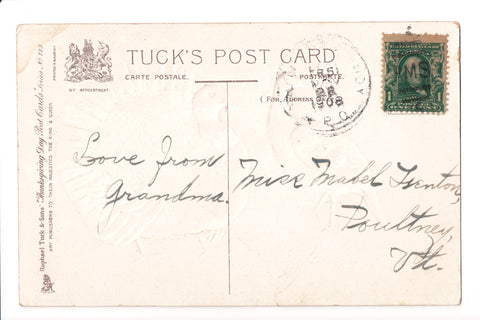 TUCK'S POST CARD
CARTE POSTALE. POSTKARTE.
BY APPOINTMENT.
( For Address
1908
R.P.O.
RMS
Love from
Grandma.
Miss Mabel
Poultney,
Vt.
Raphael Tuck & Sons' "Thanksgiving Day" Post Cards Series No 123.
ART PUBLISHERS TO THEIR MAJESTIES THE KING & QUEEN.